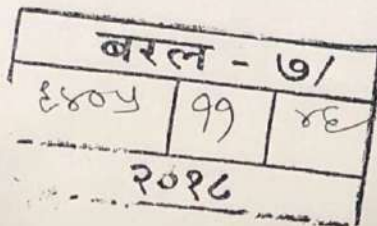 बरल - ७/
६४०५ ११ ४६
२०१८